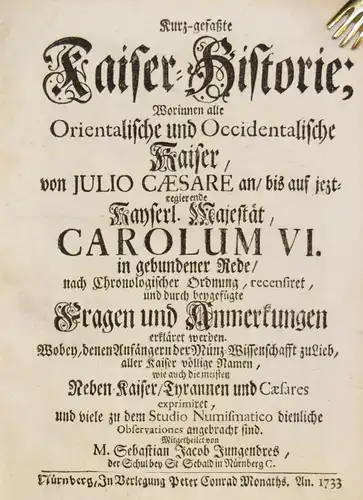 Kurz-gefaßte
Kaiser-Historie;
Worinnen alle
Orientalische und Occidentalische
Kaiser,
von JULIO CÆSARE an/ bis auf jezt-
regierende
Kayserl. Majestät,
CAROLUM VI.
in gebundener Rede/
nach Chronologischer Ordnung, recensiret,
und durch beygefügte
Fragen und Anmerkungen
erkläret werden.
Wobey, denen Anfängern der Münz-Wissenschafft zu Lieb,
aller Kaiser völlige Namen,
wie auch die meisten
Neben-Kaiser/Tyrannen und Cæsares
exprimiret,
und viele zu dem Studio Numismatico dienliche
Observationes angebracht sind.
Mitgetheilet von
M. Sebastian Jacob Jungendres,
der Schul bey St. Sebald in Nürnberg C.
Nürnberg, In Verlegung Peter Conrad Monaths. An. 1733